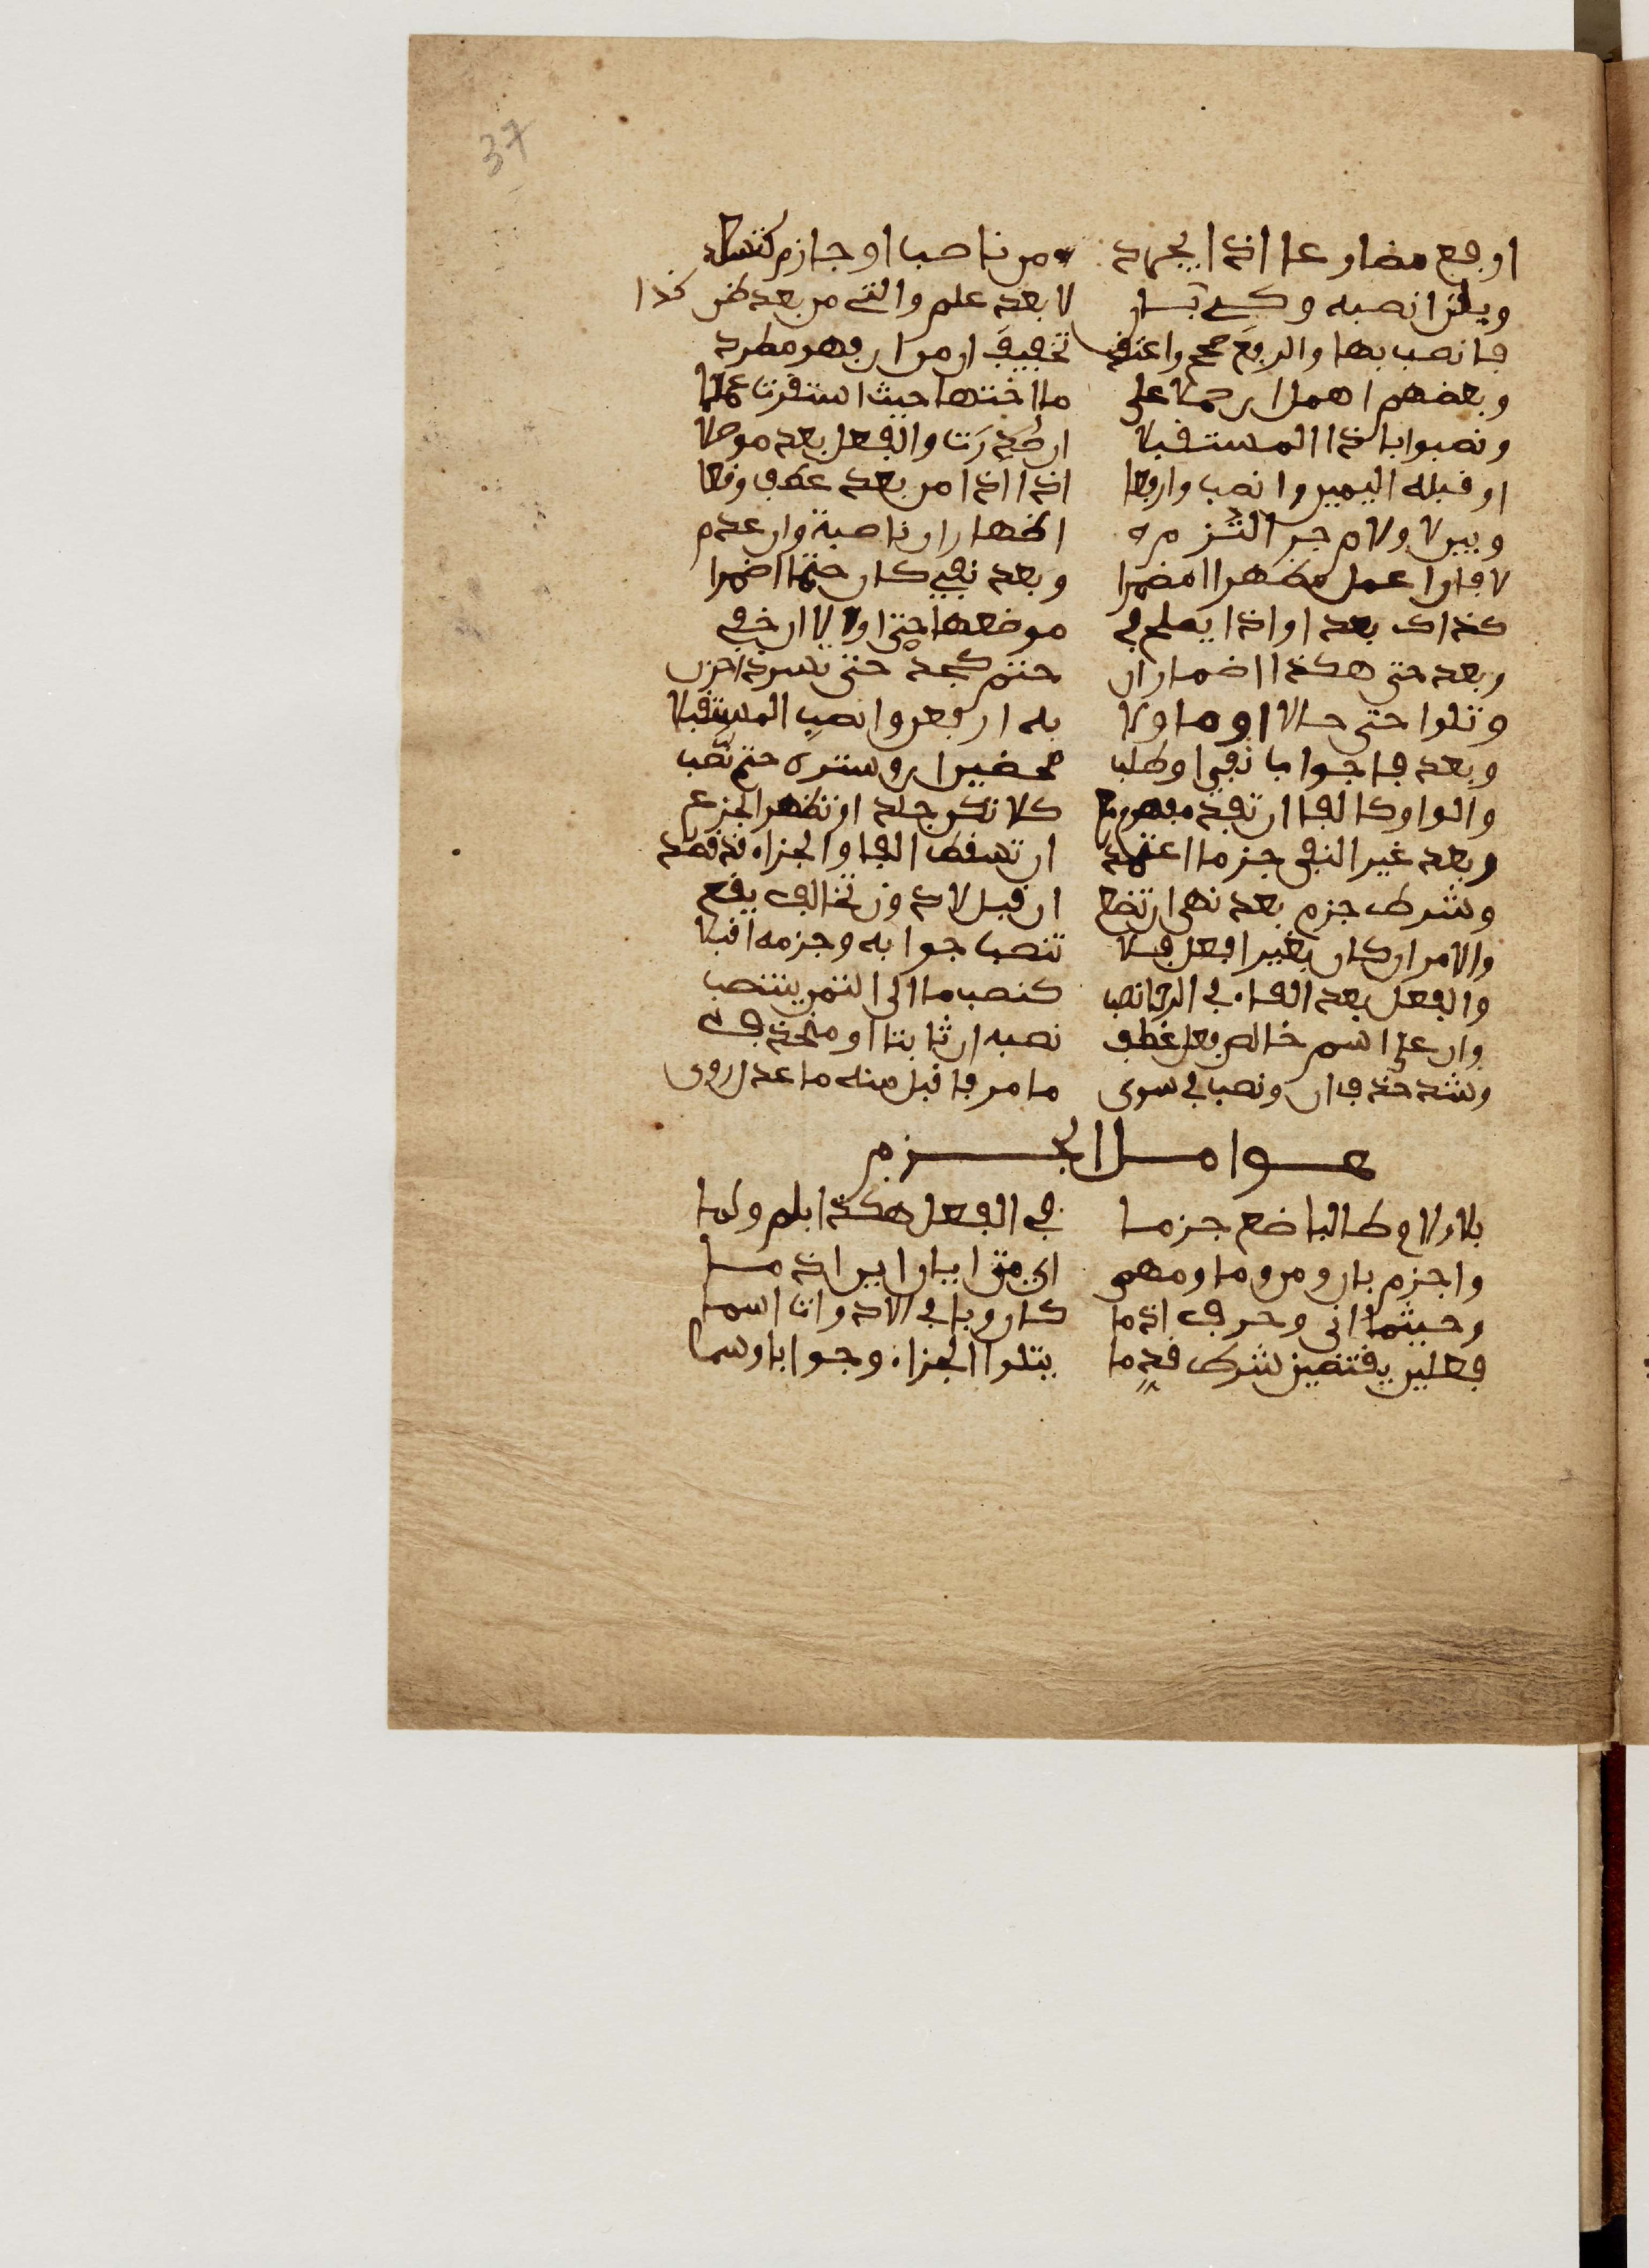 37
ارفع مضارعا اذا يجرد من ناصب او جازم كتسعد
وبلن انصبه وكي كذا بان لا بعد علم والتي من بعد ظن
فانصب بها والرفع صحح واعتقد تخفيفها من ان فهو مطرد
وبعضهم اهمل ان حملا على ما اختها حيث استحقت عملا
ونصبوا باذا المستقبلا ان صُدِّرَت والفعل بعد موصلا
او قبله اليمين وانصب وارفعا اذا اذا من بعد عطف وقعا
وبين لا ولام جر التزم اظهار ان ناصبة وان عدم
لا فان اعمل مظهرا او مضمرا وبعد نفي كان حتما اضمرا
كذاك بعد او اذا يصلح في موضعها حتى او الا ان خفي
وبعد حتى هكذا اضمار ان حتم كجد حتى تسر ذا حزن
وتلو حتى حالا او ماولا به ارفعن وانصب المستقبلا
وبعد فا جواب نفي او طلب محضين ان وستره حتم نصب
والواو كالفا ان تفد مفهوم مع كلا تكن جلدا وتظهر الجزع
وبعد غير النفي جزما اعتمد ان تسقط الفا والجزاء قد قصد
وشرط جزم بعد نهي ان تضع ان قبل لا دون تخالف يقع
والامر ان كان بغير افعل فلا تنصب جوابه وجزمه اقبلا
والفعل بعد الفاء في الرجا نصب كنصب ما الى التمني ينتصب
وان على اسم خالص فعل عطف نصبه ان ثابتا او منحذف
وشذ حذف ان ونصب في سوى ما مر فاقبل منه ما عدل روى
عوامل الجزم
بلا ولام طالبا ضع جزما في الفعل هكذا بلم ولما
واجزم بان ومن وما ومهما اي متى ايان اين اذ ما
وحيثما انى وحرف اذ ما كان وباقي الادوات اسما
فعلين يقتضين شرط قدما يتلوا الجزاء وجوابا وسما